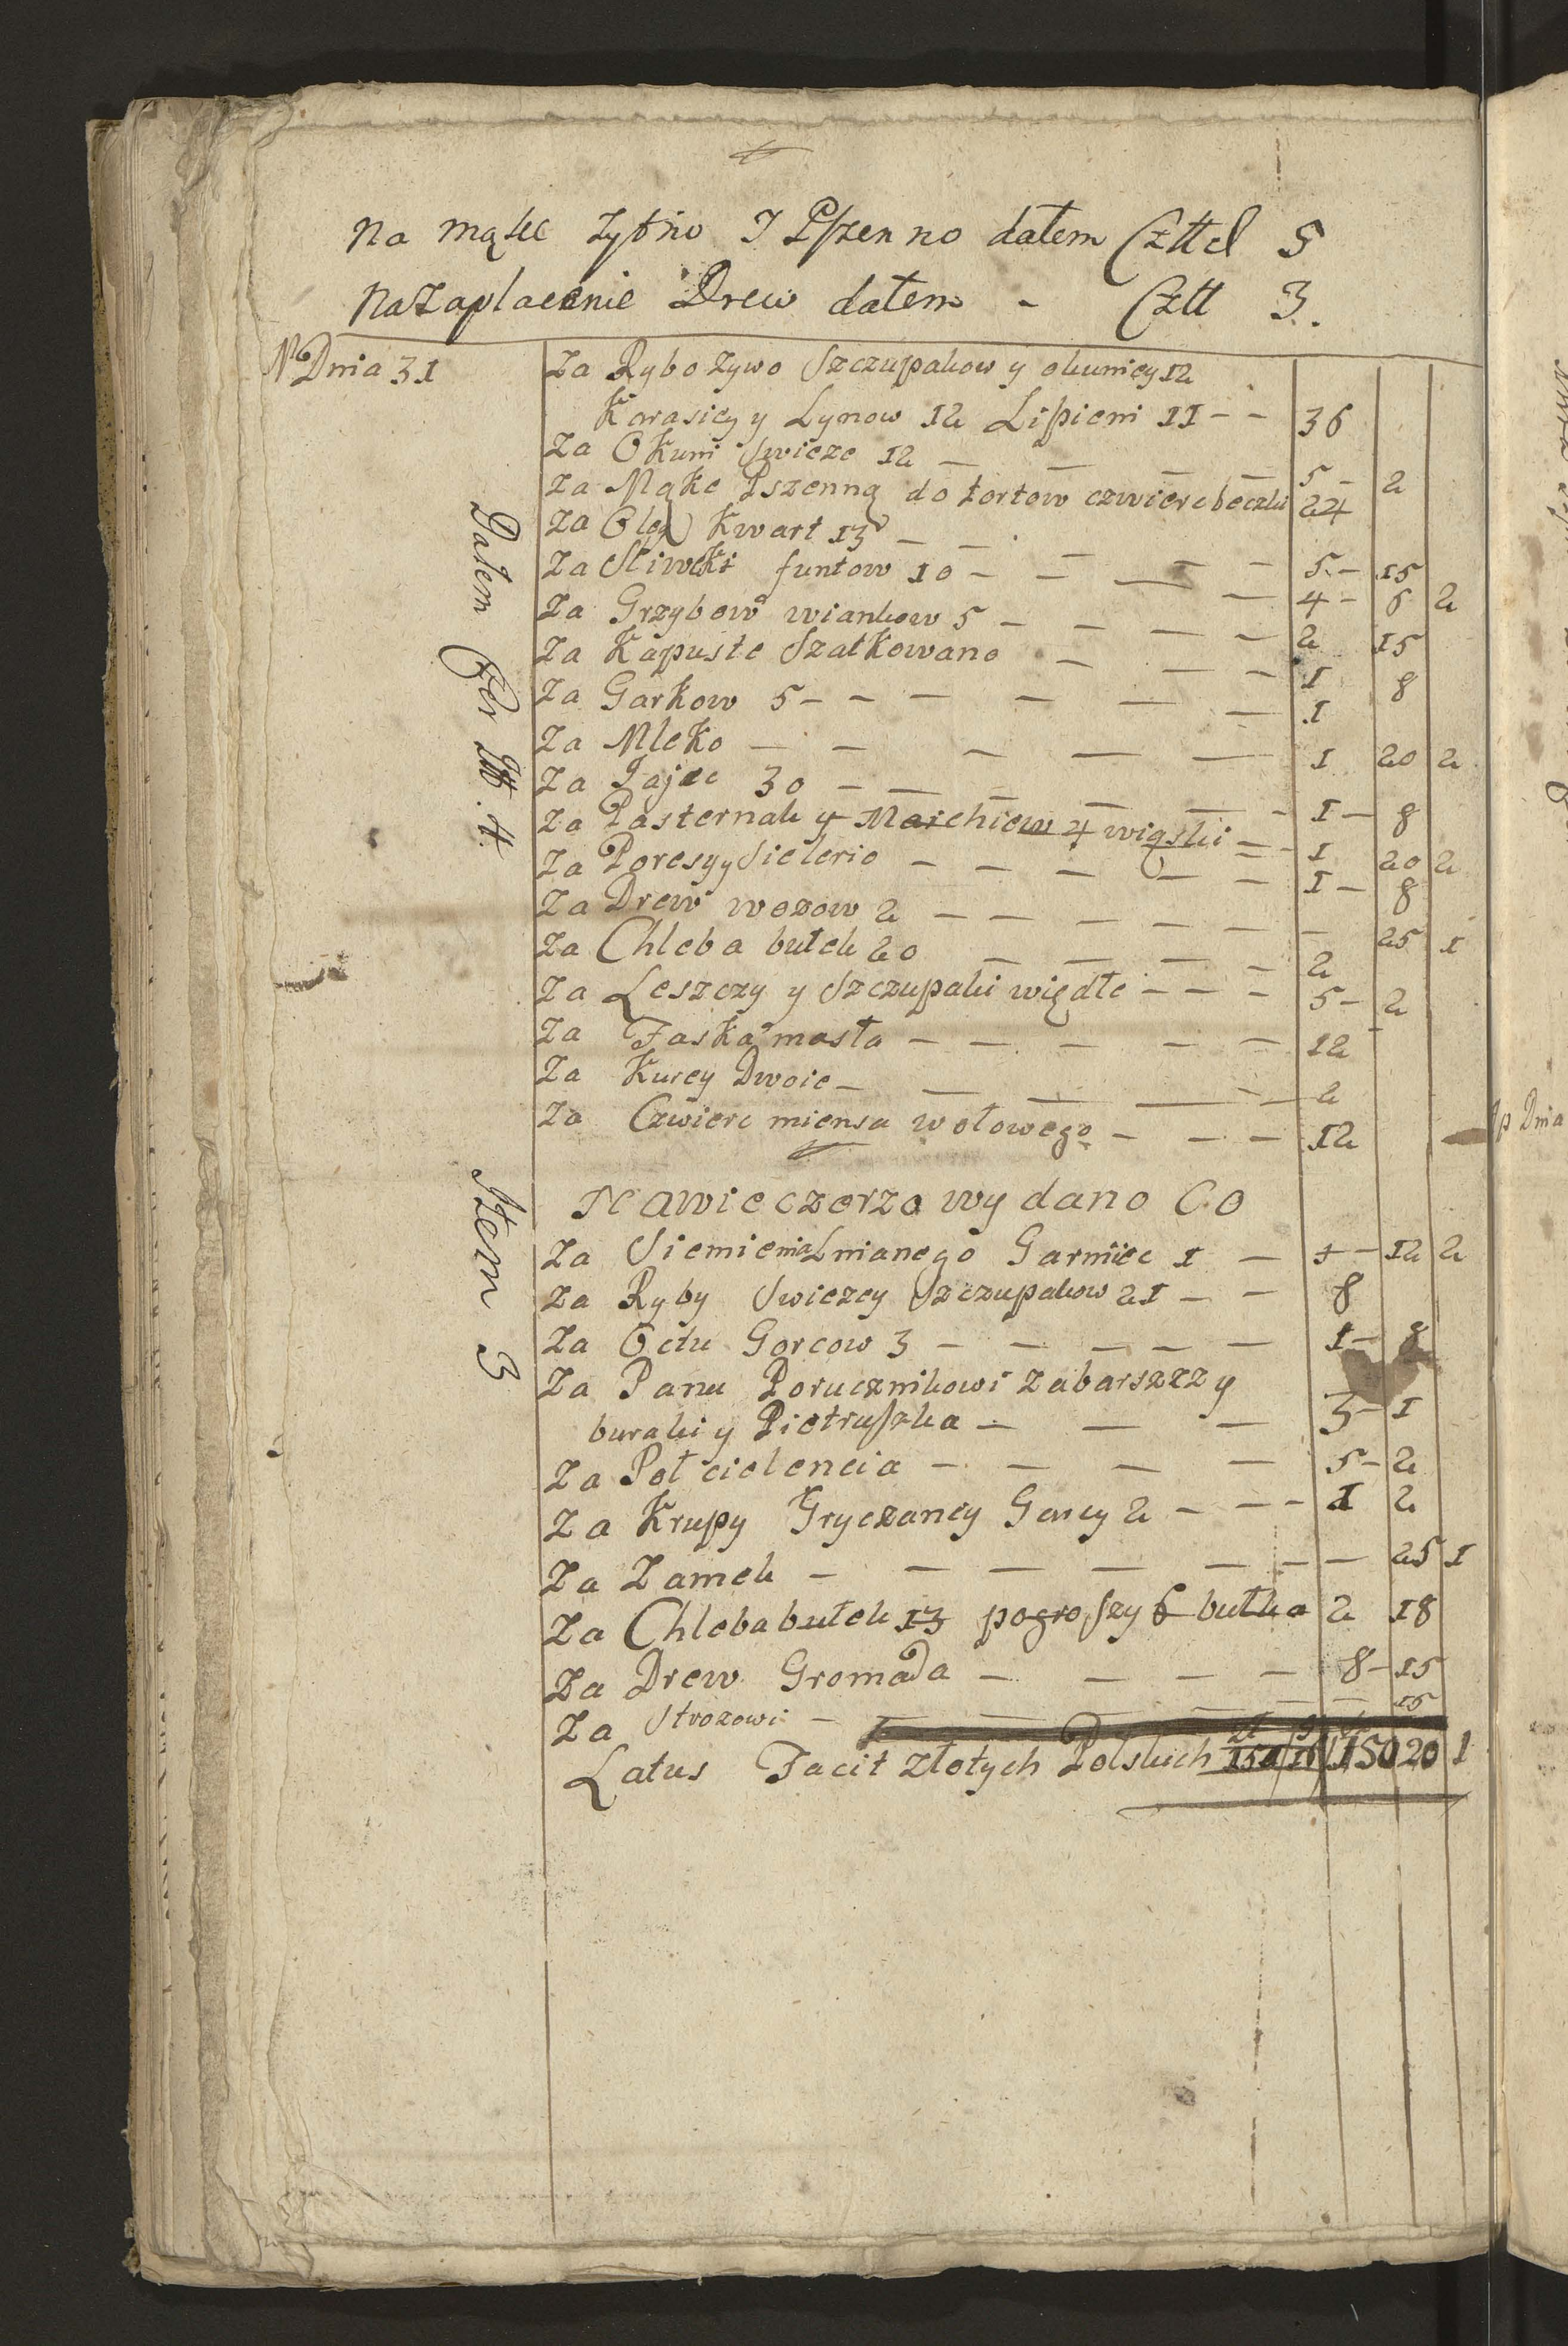 Na mąkę zytno I Pszenno dałem Człł d 5
Na Zapłacenie Drew dałem - Człł 3.
N Dnia 31
Za Rybo zywo Szczupakow y okunicy 12
Karasicy y Lynow 12 Lipieni 11 - - 36
Za Okuni Swieze 12 - - - - 5 - 2
Za Mąke Pszenną do tortow czwierc beczki 24
Za Oleg Kwart 13 - - - - - 5 - 15
Za Sliweki funtow 10 - - - - 4 - 6 2
Za Grzybow wiankow 5 - - - - 2 15
Za Kapuste Szatkowano - - - 1 8
Za Garkow 5 - - - - - - 1
Za Mleko - - - - - 1 20 2
Za Jajec 30 - - - - - 1 - 8
Za Pasternak y Marchiew 4 wiąski - - 1 20 2
Za Poresy y Sielerio - - - - - 1 - 8
Za Drew wozow 2 - - - - - - 25 1
Za Chleba bułek 20 - - - - 2
Za Leszczy y Szczupaki więdłe - - - 5 - 2
Za Faska masła - - - - - 12
Za Kurcy Dwoie - - - - - 2
Za Czwierc miensa wołowego - - - 12
Dałem
Nawieczerzo wydano Co
Item 3
Za Siemienia Lnianego Garniec 1 - + - 12 2
Za Ryby Swiezey Szczupakow 21 - - 8
Za Octu Gorcow 3 - - - - - 1 - 8
Za Panu Porucznikowi Zabarszzz y
buraki y Pietruszka - - - 3 - 1
Za Poł cielencia - - - - 5 - 2
Za Krupy Gryczaney Gancy 2 - - - 1 2
Za Zamek - - - - - - - 25 1
Za Chleba bułek 13 pogroszy 6 bułka 2 18
Za Drew Gromada - - - - 8 - 15
Za Strozowi - - - - - - 15
Latus Facit złotych Polskich 150 20 1
p Dnia